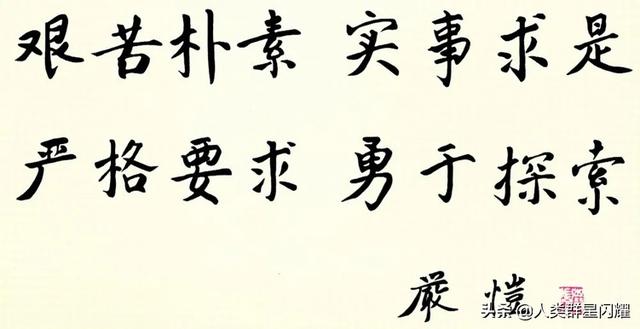 艰苦朴素 实事求是
严格要求 勇于探索
嚴愷
头条@人类群星闪耀